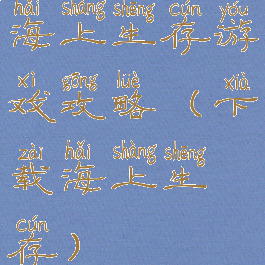 hǎi shàng shēng cún yóu
海上生存游
xì gōng lüè xià
戏攻略（下
zài hǎi shàng shēng
载海上生
cún
存）